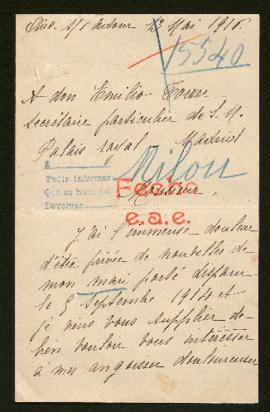 Aixe s/ Vienne 23 Mai 1916.
15540
A don Emilio Torres
Secrétaire particulier de S. M.
Palais royal Madrid
Milou
A
Pedir informes
Que es hace así
Devolver
Fecho
e.a.e.
Monsieur,
J'ai l'immense douleur
d'être privée de nouvelles de
mon mari porté disparu
le 9 Septembre 1914 et
je viens vous supplier de
bien vouloir vous intéresser
à mes angoisses douloureuses